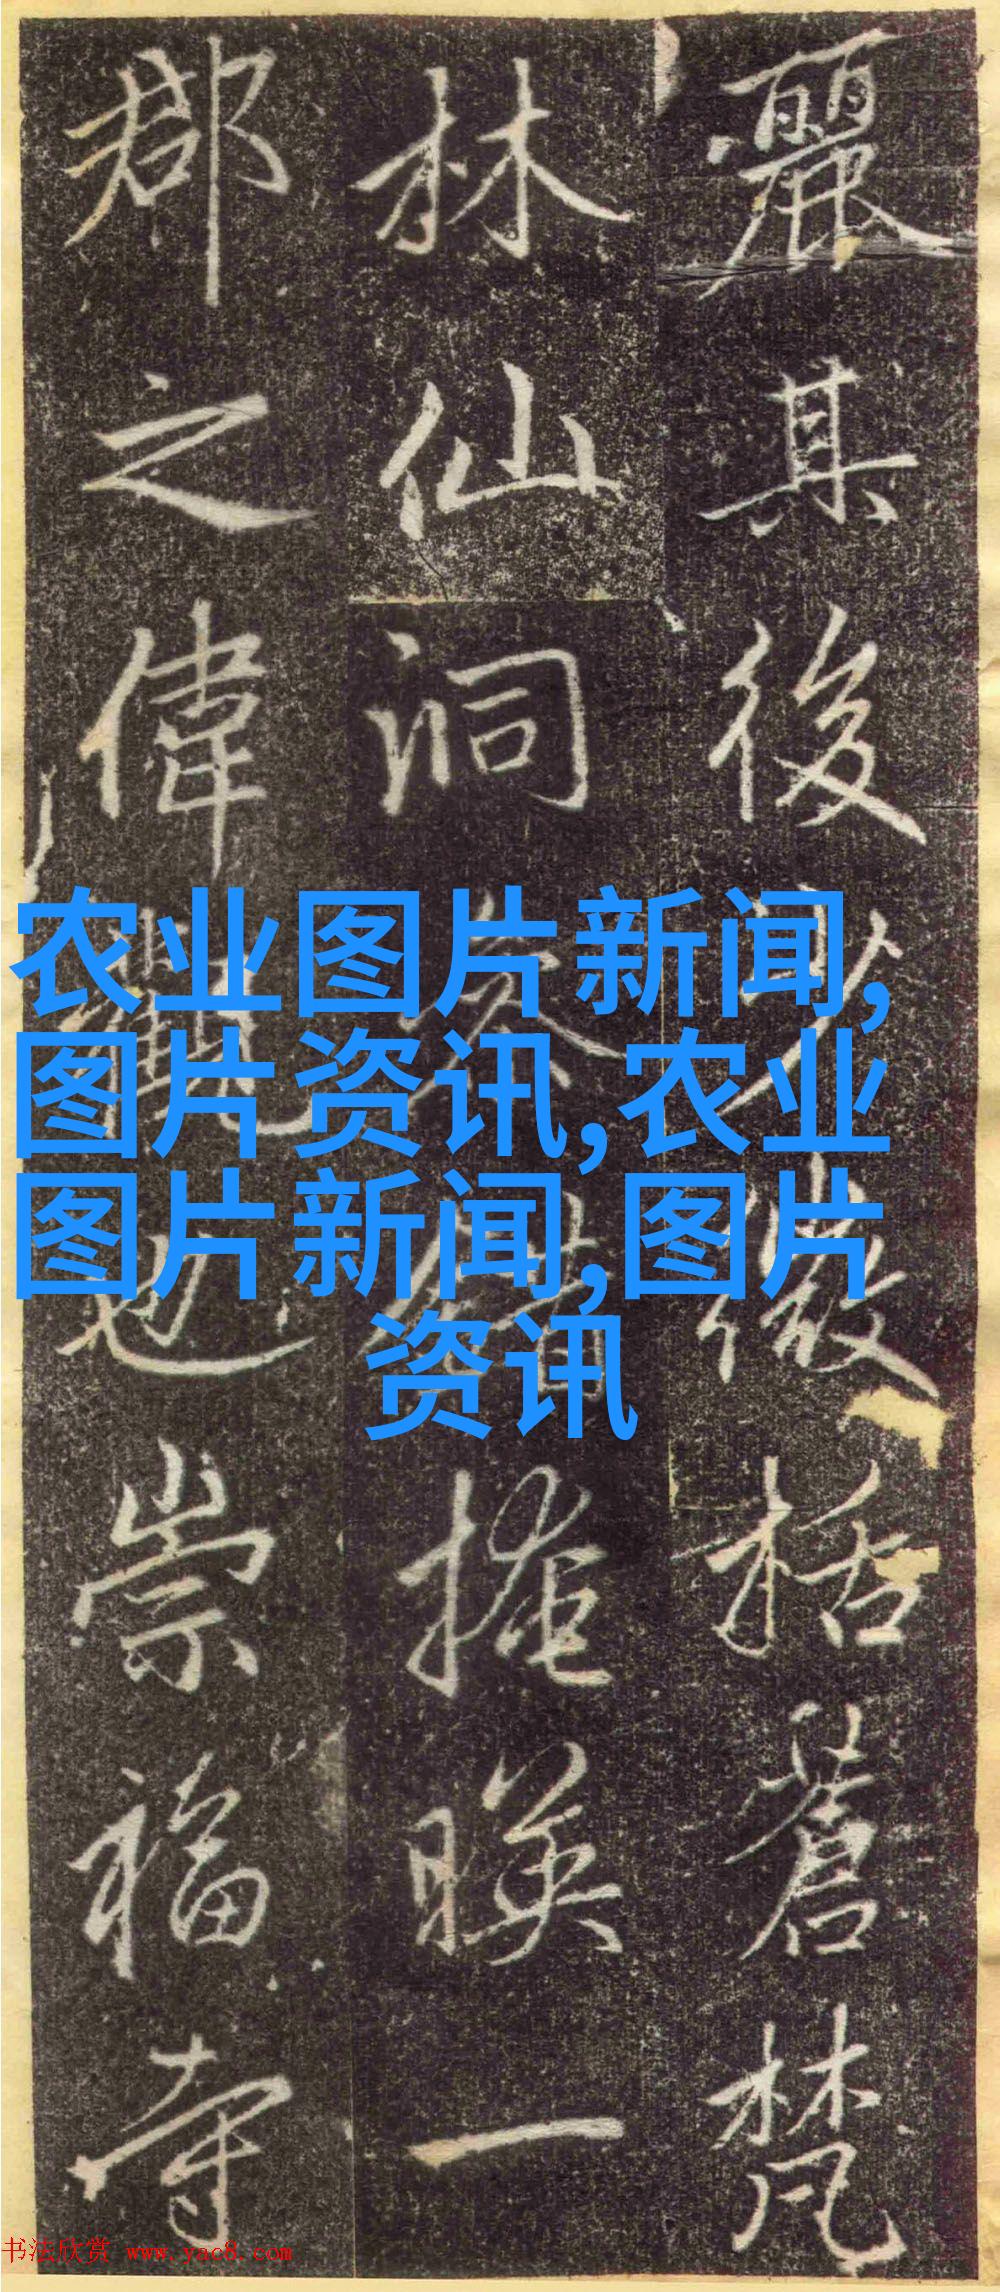 麗其後少微括蒼梵
林仙洞交錯掩暎一
郡之偉觀也崇福寺
农业图片新闻,
图片资讯,农业
图片新闻,图片
资讯
书法欣赏 www.yac8.com